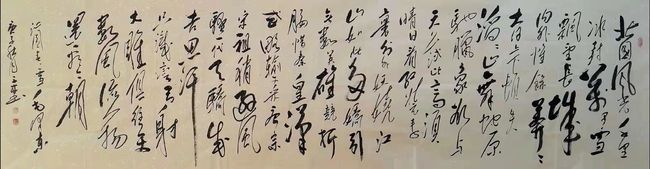 北国风光千里
冰封万里雪
飘望长城
内外惟余莽莽
大河上下顿失
滔滔山舞银蛇原
驰蜡象欲与
天公试比高须
晴日看红装素
裹分外妖娆江
山如此多娇引
无数英雄竞折
腰惜秦皇汉
武略输文采唐宗
宋祖稍逊风
骚一代天骄成
吉思汗
只识弯弓射
大雕俱往矣
数风流人物
还看今朝
沁园春雪毛泽东